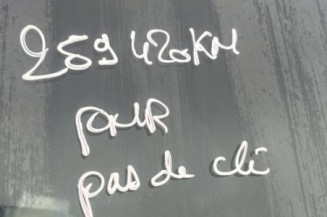 259 420KM
pour
pas de clé